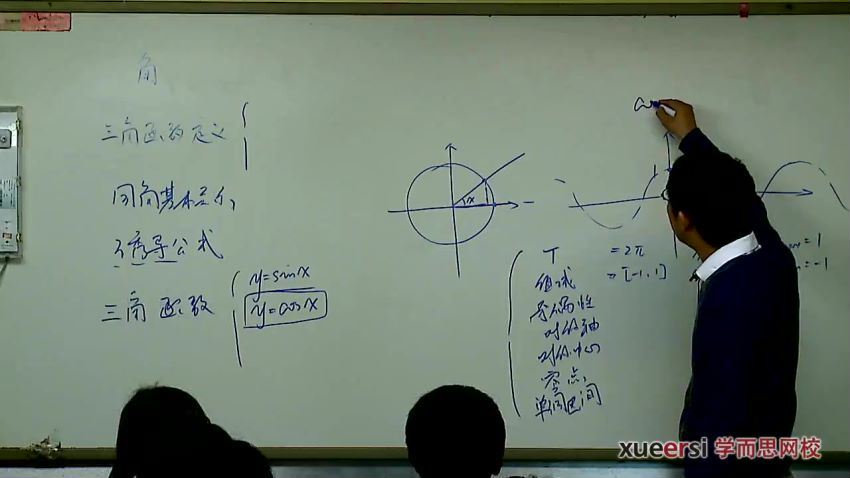 角
三角函数定义
同角基本关系
诱导公式
三角函数
y=sinx
y=cosx
x
T =2π
值域 =[-1,1]
奇偶性
对称轴
对称中心
零点
单调区间
=1
=-1
xueersi 学而思网校